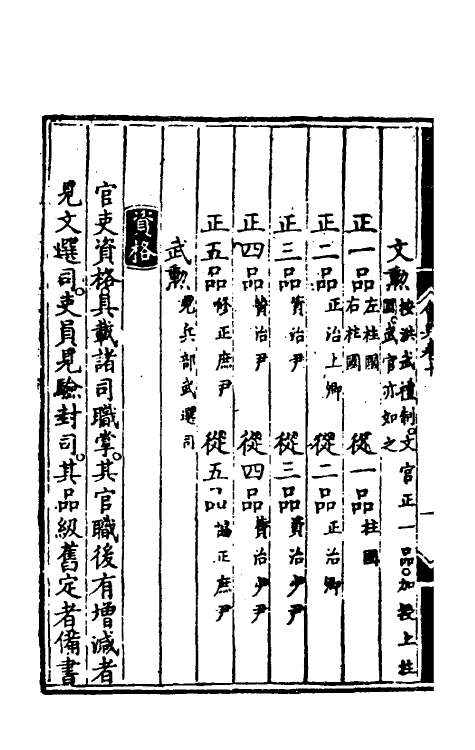 文勲按洪武禮制文官正一品加授上柱國武官亦如之
正一品左柱國右柱國　從一品柱國
正二品正治上卿　從二品正治卿
正三品資治尹　從三品資治少尹
正四品賛治尹　從四品賛治少尹
正五品修正庶尹　從五品協正庶尹
武勲見兵部武選司
資格
官吏資格具載諸司職掌其官職後有增減者
見文選司吏員見驗封司其品級舊定者備書